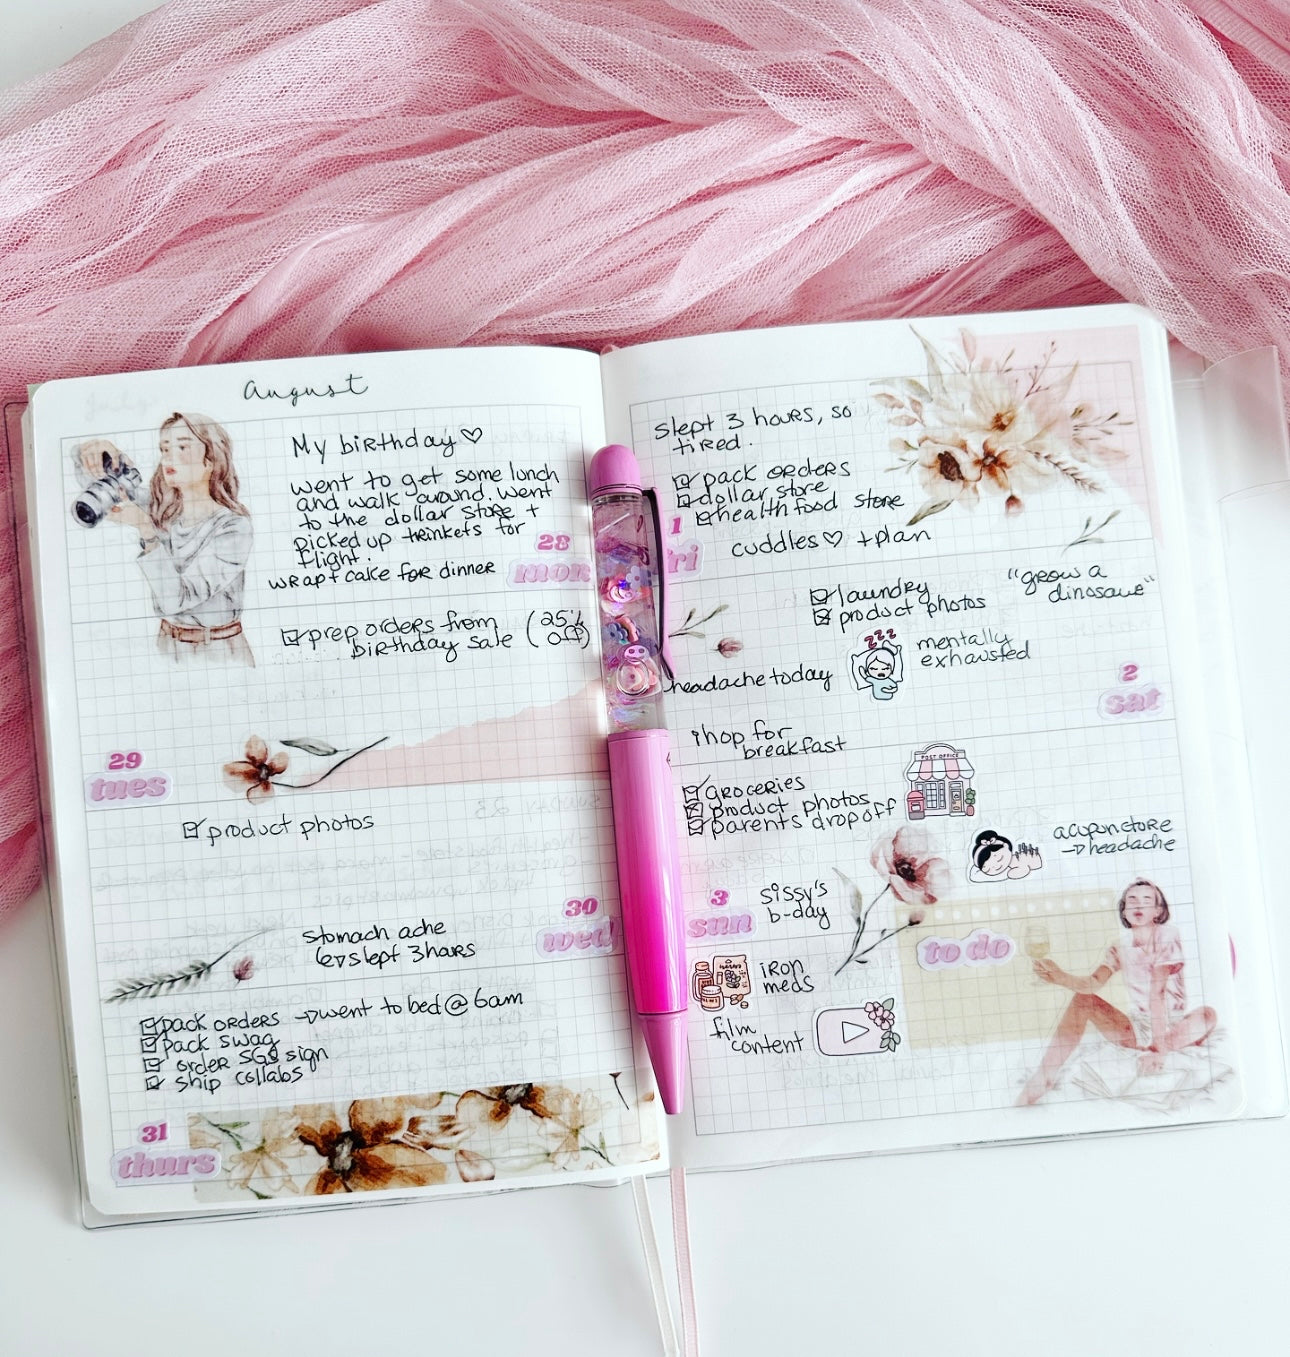 August
My birthday ♡
went to get some lunch
and walk around. Went
to the dollar store +
picked up trinkets for
flight.
wrap + cake for dinner
28
mon
☑ prep orders from
birthday sale (25%
off)
29
tues
☑ product photos
30
wed
stomach ache
↳ slept 3 hours
☑ pack orders → went to bed @ 6am
☑ pack swag
☑ order SGS sign
☑ ship collabs
31
thurs
slept 3 hours, so
tired.
☑ pack orders
☑ dollar store
☑ health food store
1
fri
cuddles ♡ + plan
☑ laundry
☑ product photos
"grow a
dinosaur"
zzz
mentally
exhausted
headache today
2
sat
ihop for
breakfast
☑ groceries
☑ product photos
☑ parents drop off
POST OFFICE
acupuncture
→ headache
3
sun
sissy's
b-day
to do
iron
meds
film
content